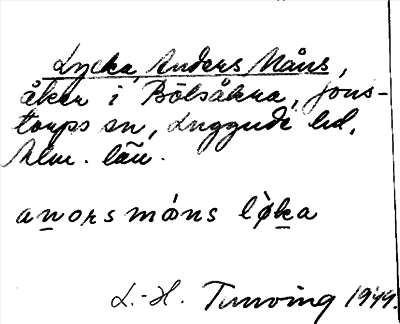 Lycka, Anders Måns,
åker i Bölsåkra, Jons-
torps sn, Luggude hd,
Mlm. län.
anorsmåns løka
L.-H. Tunving 1949.